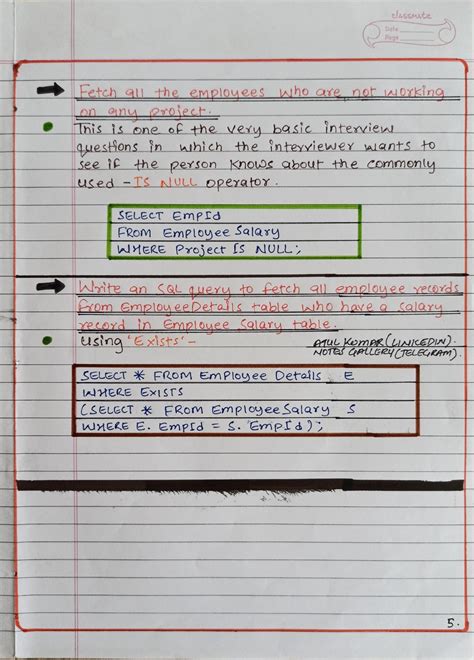 classmate
Date
Page
Fetch all the employees who are not working
on any project.
This is one of the very basic interview
questions in which the interviewer wants to
see if the person knows about the commonly
used - IS NULL operator.
SELECT EmpId
FROM Employee Salary
WHERE Project IS NULL;
Write an SQL query to fetch all employee records
from EmployeeDetails table who have a salary
record in Employee Salary table.
Using 'Exists' -
ATUL KUMAR (LINKEDIN).
NOTES GALLERY (TELEGRAM).
SELECT * FROM Employee Details E
WHERE EXISTS
(SELECT * FROM Employee Salary S
WHERE E. EmpId = S. EmpId);
5.